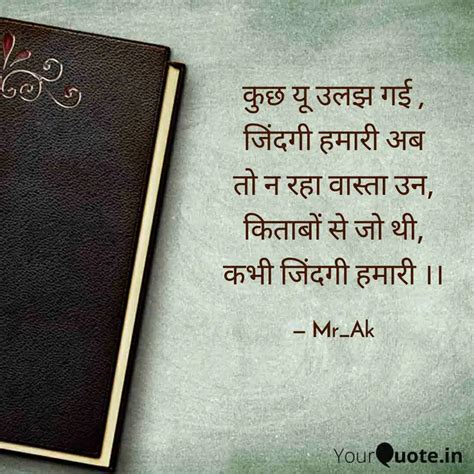 कुछ यू उलझ गई ,
जिंदगी हमारी अब
तो न रहा वास्ता उन,
किताबों से जो थी,
कभी जिंदगी हमारी ।।
– Mr_Ak
YourQuote.in